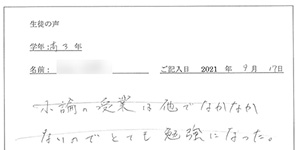 生徒の声
学年 高3年
名前： ご記入日 2021年 9月 17日
小論の授業は他でなかなか
ないのでとても勉強になった。